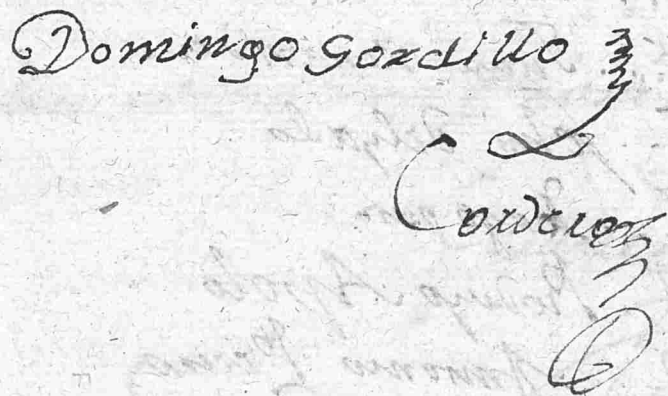 Domingo Gordillo
Cordero